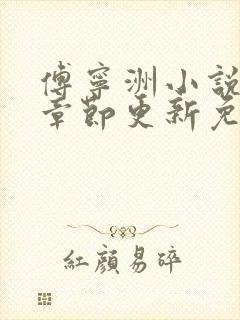 傅寧洲小說
章節更新免
紅顏易碎